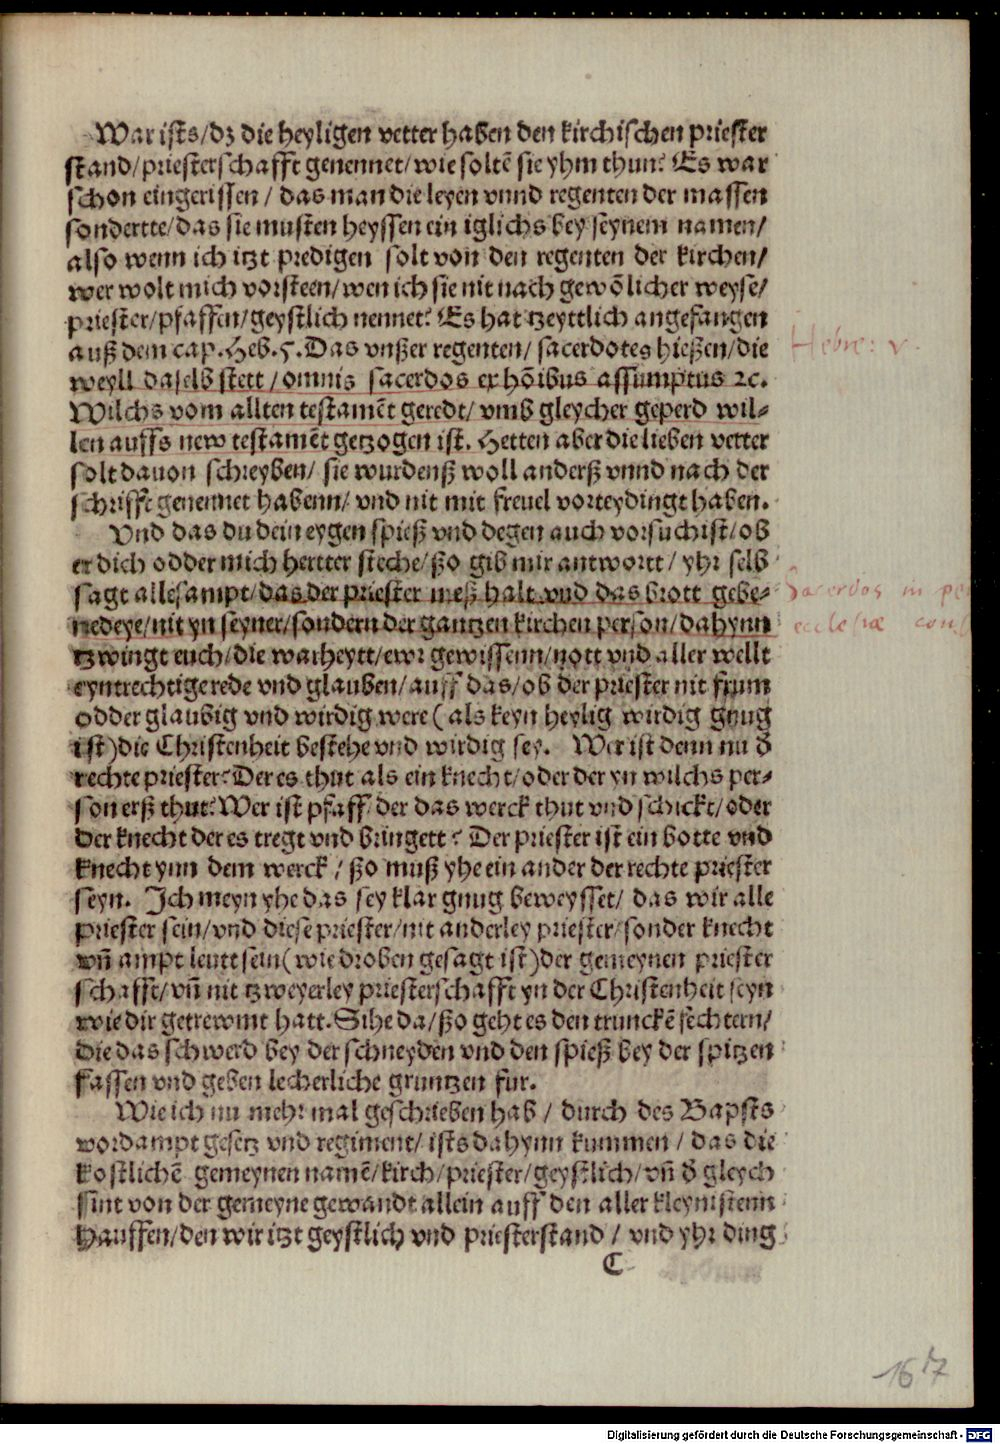 War ists/dz die heyligen vetter haben den kirchischen priester
stand/priesterschafft genennet/wie soltē sie yhm thun? Es war
schon eingerissen/ das man die leyen vnnd regenten der massen
sondertte/das sie musten heyssen ein iglichs bey seynem namen/
also wenn ich itzt predigen solt von den regenten der kirchen/
wer wolt mich vorsteen/wen ich sie nit nach gewōlicher weyse/
priester/pfaffen/geystlich nennet? Es hat tzeyttlich angefangen
auß dem cap. Heb. 5. Das vnßer regenten/ sacerdotes hießen/die
weyll daselb stett/omnis sacerdos ex hōibus assumptus ⁊c.
Wilchs vom allten testamēt geredt/vmb gleycher geperd wil⸗
len auffs new testamēt getzogen ist. Hetten aber die lieben vetter
solt dauon schreyben/ sie wurdenß woll anderß vnnd nach der
schrifft genennet habenn/ vnd nit mit freuel vorteydingt haben.
Vnd das du dein eygen spieß vnd degen auch vorsuchist/ob
er dich odder mich hertter steche/ßo gib mir antwortt/ yhr selb
sagt allesampt/das der priester meß halt vnd das brott gebe⸗
nedeye/nit yn seyner/sondern der gantzen kirchen person/dahynn
tzwingt euch/die warheytt/ewr gewissenn/nott vnd aller wellt
eyntrechtige rede vnd glauben/auff das/ob der priester nit frum
odder glaubig vnd wirdig were (als keyn heylig wirdig gnug
ist) die Christenheit bestehe vnd wirdig sey. Wer ist denn nu d̄
rechte priester? Der es thut als ein knecht/oder der yn wilchs per⸗
son erß thut? Wer ist pfaff der das werck thut vnd schickt/oder
der knecht der es tregt vnd bringett? Der priester ist ein botte vnd
knecht ynn dem werck/ ßo muß yhe ein ander der rechte priester
seyn. Ich meyn yhe das sey klar gnug beweysset/ das wir alle
priester sein/vnd diese priester/nit anderley priester/sonder knecht
vn̄ ampt leutt sein (wie droben gesagt ist) der gemeynen priester
schafft/vn̄ nit tzweyerley priesterschafft yn der Christenheit seyn
wie dir getrewmt hatt. Sihe da/ßo geht es den trunckē fechtern/
die das schwerd bey der schneyden vnd den spieß bey der spitzen
fassen vnd geben lecherliche gruntzen fur.
Wie ich nu mehr mal geschrieben hab/ durch des Bapsts
wordampt gesetz vnd regiment/ ists dahynn kummen/ das die
kostlichē gemeynen namē/kirch/priester/geystlich/vn̄ d̄ gleych
sint von der gemeyne gewandt allein auff den aller kleynistenn
hauffen/den wir itzt geystlich vnd priesterstand/ vnd yhr ding
C
Hebre: v.
Sacerdos in
ecclesiæ
167
Digitalisierung gefördert durch die Deutsche Forschungsgemeinschaft - DFG